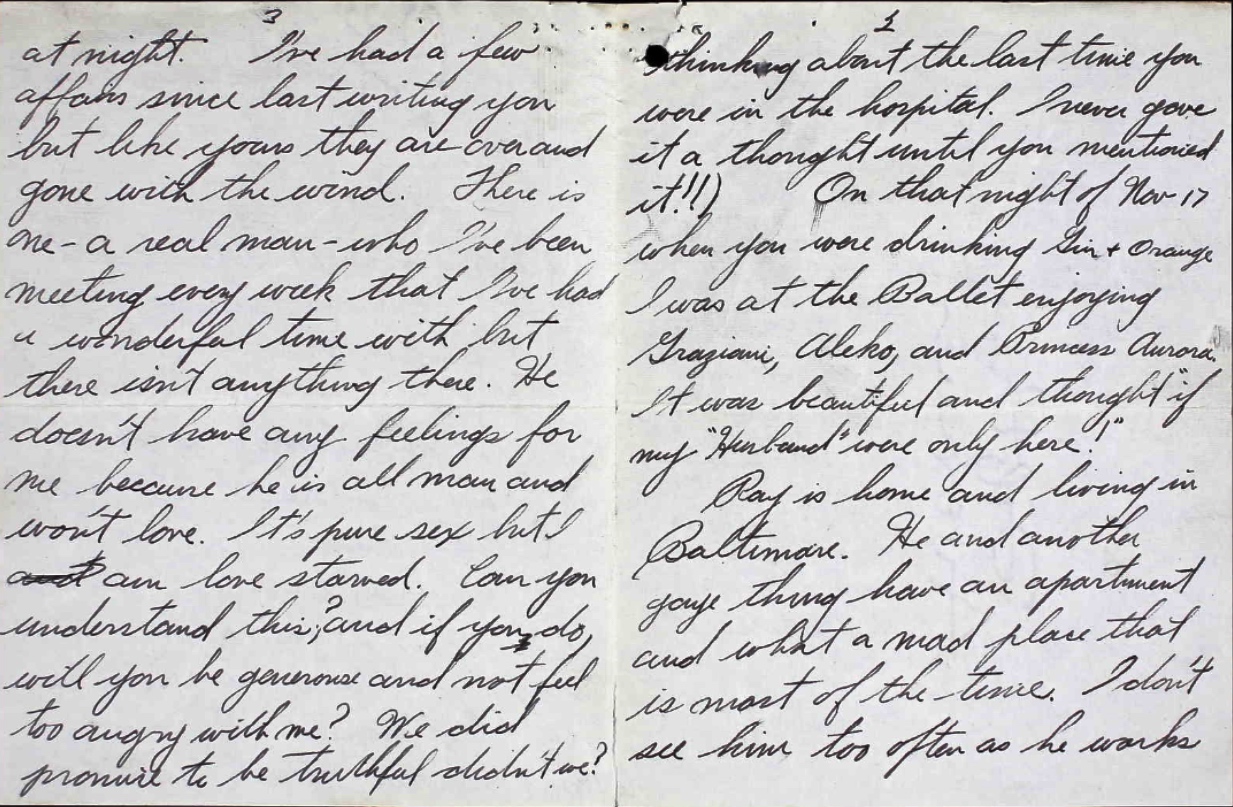 2
thinking about the last time you
were in the hospital. I never gave
it a thought until you mentioned
it!!!) On that night of Nov 17
when you were drinking Gin + Orange
I was at the Ballet enjoying
Graziani, Aleko, and Princess Aurora.
It was beautiful and thought "if
my "Husband" were only here!"
Ray is home and living in
Baltimore. He and another
gaye thing have an apartment
and what a mad place that
is most of the time. I don't
see him too often as he works
3
at night. I've had a few
affairs since last writing you
but like yours they are over and
gone with the wind. There is
one - a real man - who I've been
meeting every week that I've had
a wonderful time with but
there isn't anything there. He
doesn't have any feelings for
me because he is all man and
won't love. It's pure sex but I
am love starved. Can you
understand this,? and if you do,
will you be generouse and not feel
too angry with me? We did
promise to be truthful didn't we?